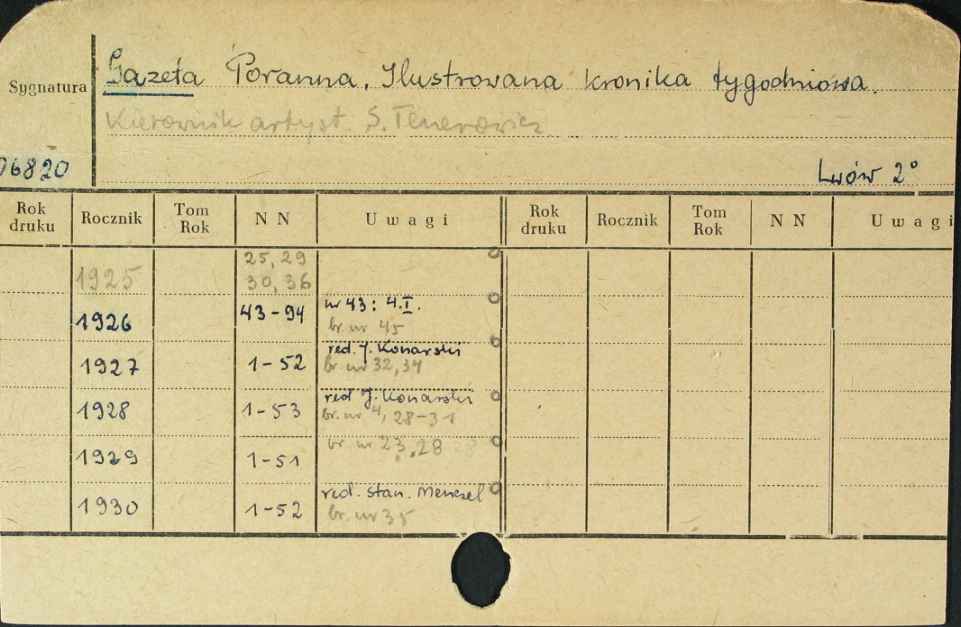 Sygnatura Gazeta Poranna. Ilustrowana kronika tygodniowa.
Kierownik artyst. S. Tenerowicz
06820 Lwów 2°
Rok druku Rocznik Tom Rok N N Uwagi Rok druku Rocznik Tom Rok N N Uwagi
25, 29
1925 30, 36
1926 43-94 nr 43: 4.I.
br. nr 45
1927 1-52 red. J. Konarski
br. nr 32, 34
1928 1-53 red J. Konarski
br. nr 4, 28-31
1929 1-51 br. nr 23, 28
1930 1-52 red. Stan.
br. nr 35